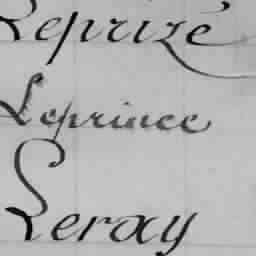 Leprizé
Leprince
Leray